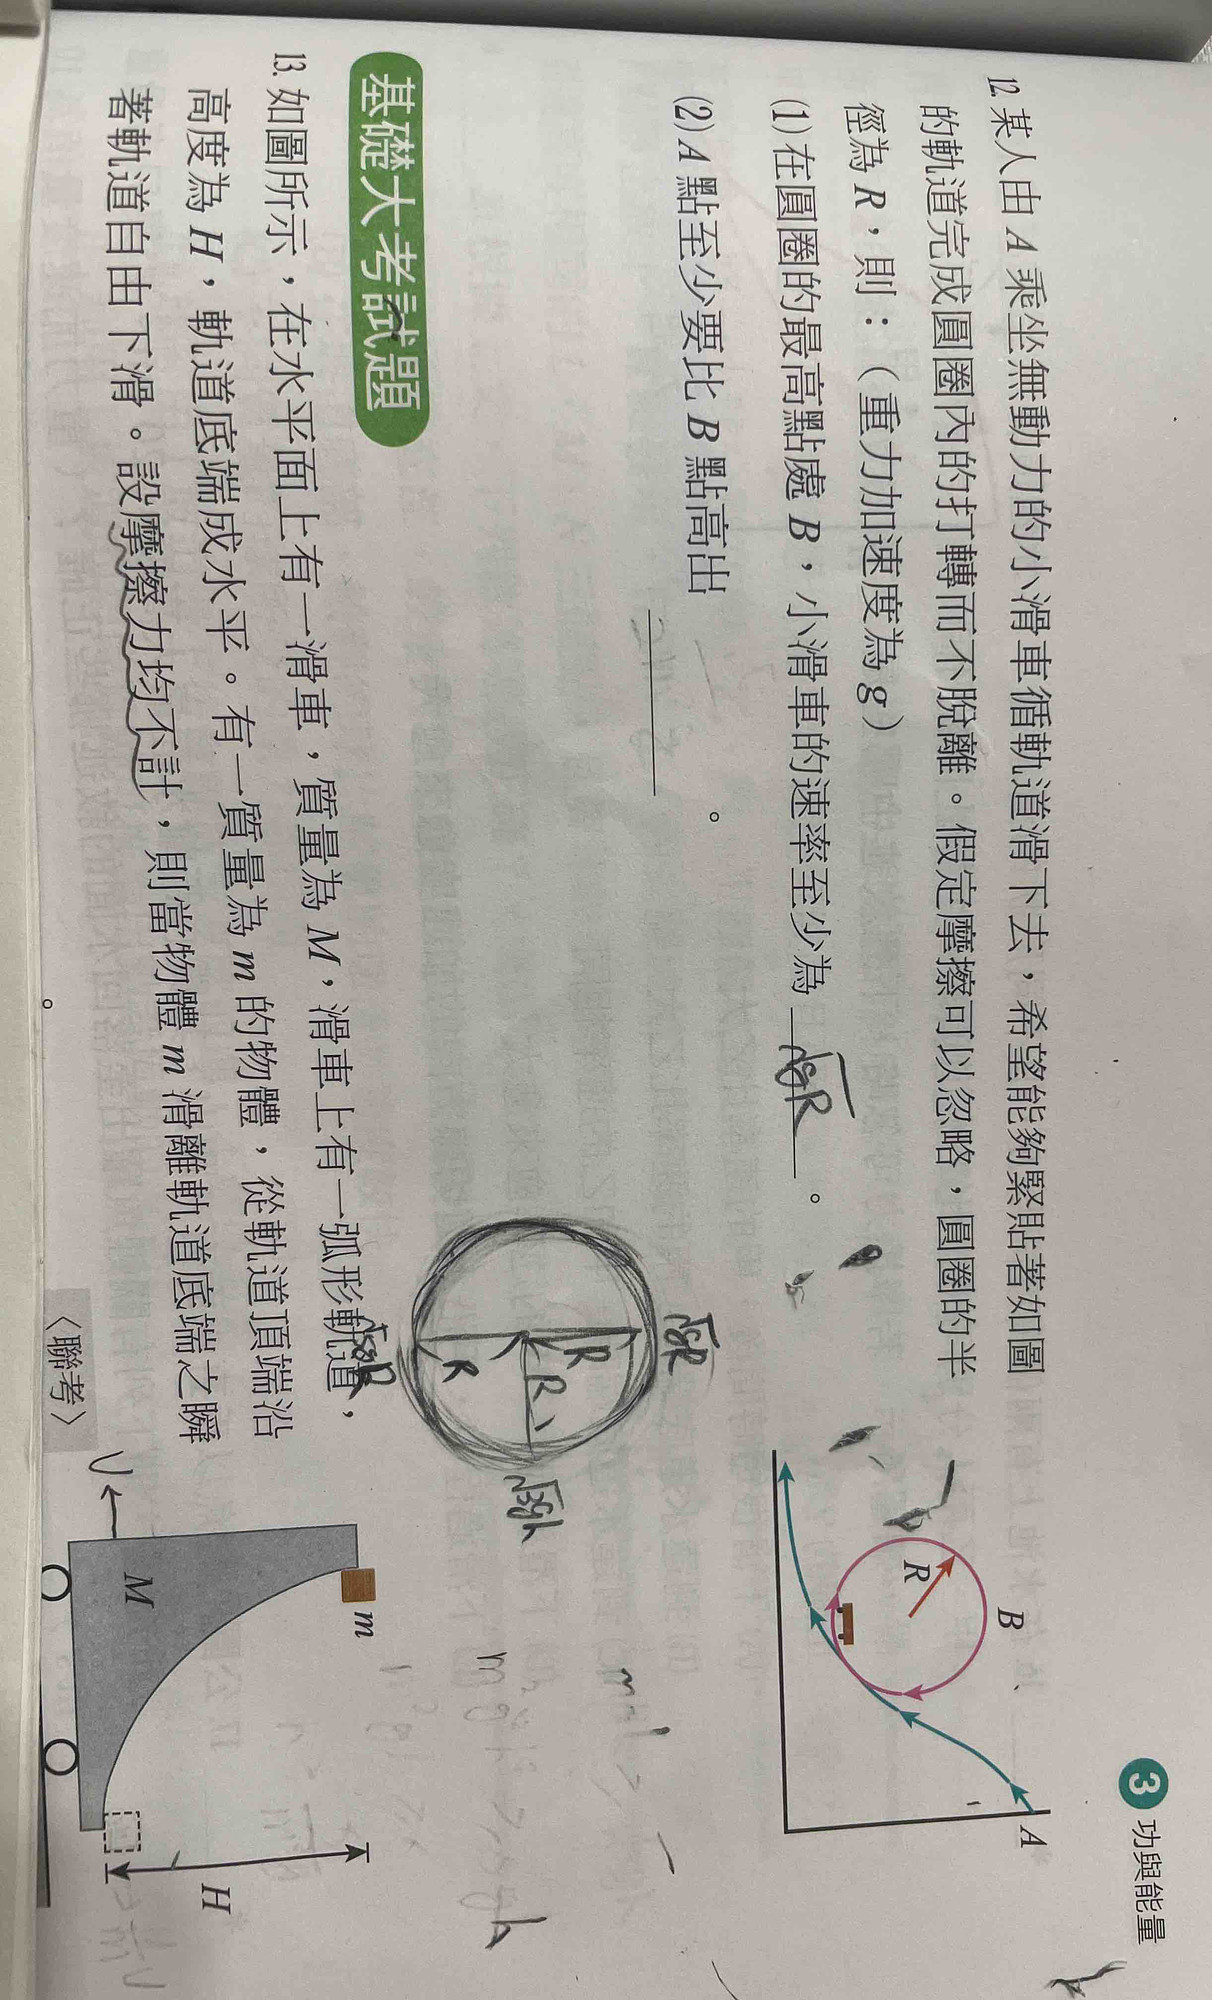 3 功與能量
12. 某人由 A 乘坐無動力的小滑車循軌道滑下去，希望能夠緊貼著如圖
的軌道完成圓圈內的打轉而不脫離。假定摩擦可以忽略，圓圈的半
徑為 R，則：（重力加速度為 g）
(1) 在圓圈的最高點處 B，小滑車的速率至少為 √gR 。
(2) A 點至少要比 B 點高出 。
A
B
R
√gR
R
R
R
√3gR
√5gR
基礎大考試題
13. 如圖所示，在水平面上有一滑車，質量為 M，滑車上有一弧形軌道，
高度為 H，軌道底端成水平。有一質量為 m 的物體，從軌道頂端沿
著軌道自由下滑。設摩擦力均不計，則當物體 m 滑離軌道底端之瞬
。
〈聯考〉
m
M
H